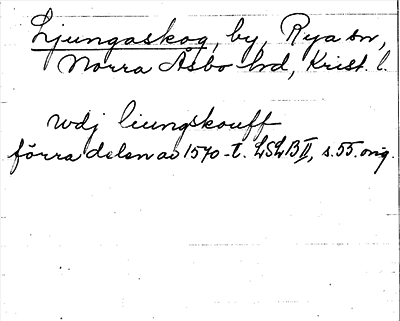 Ljungaskog, by, Rya sn,
Norra Åsbo hd, Krist. l.
udj liungskouff
förra delen av 1570-t. LSLB II, s. 55. orig.